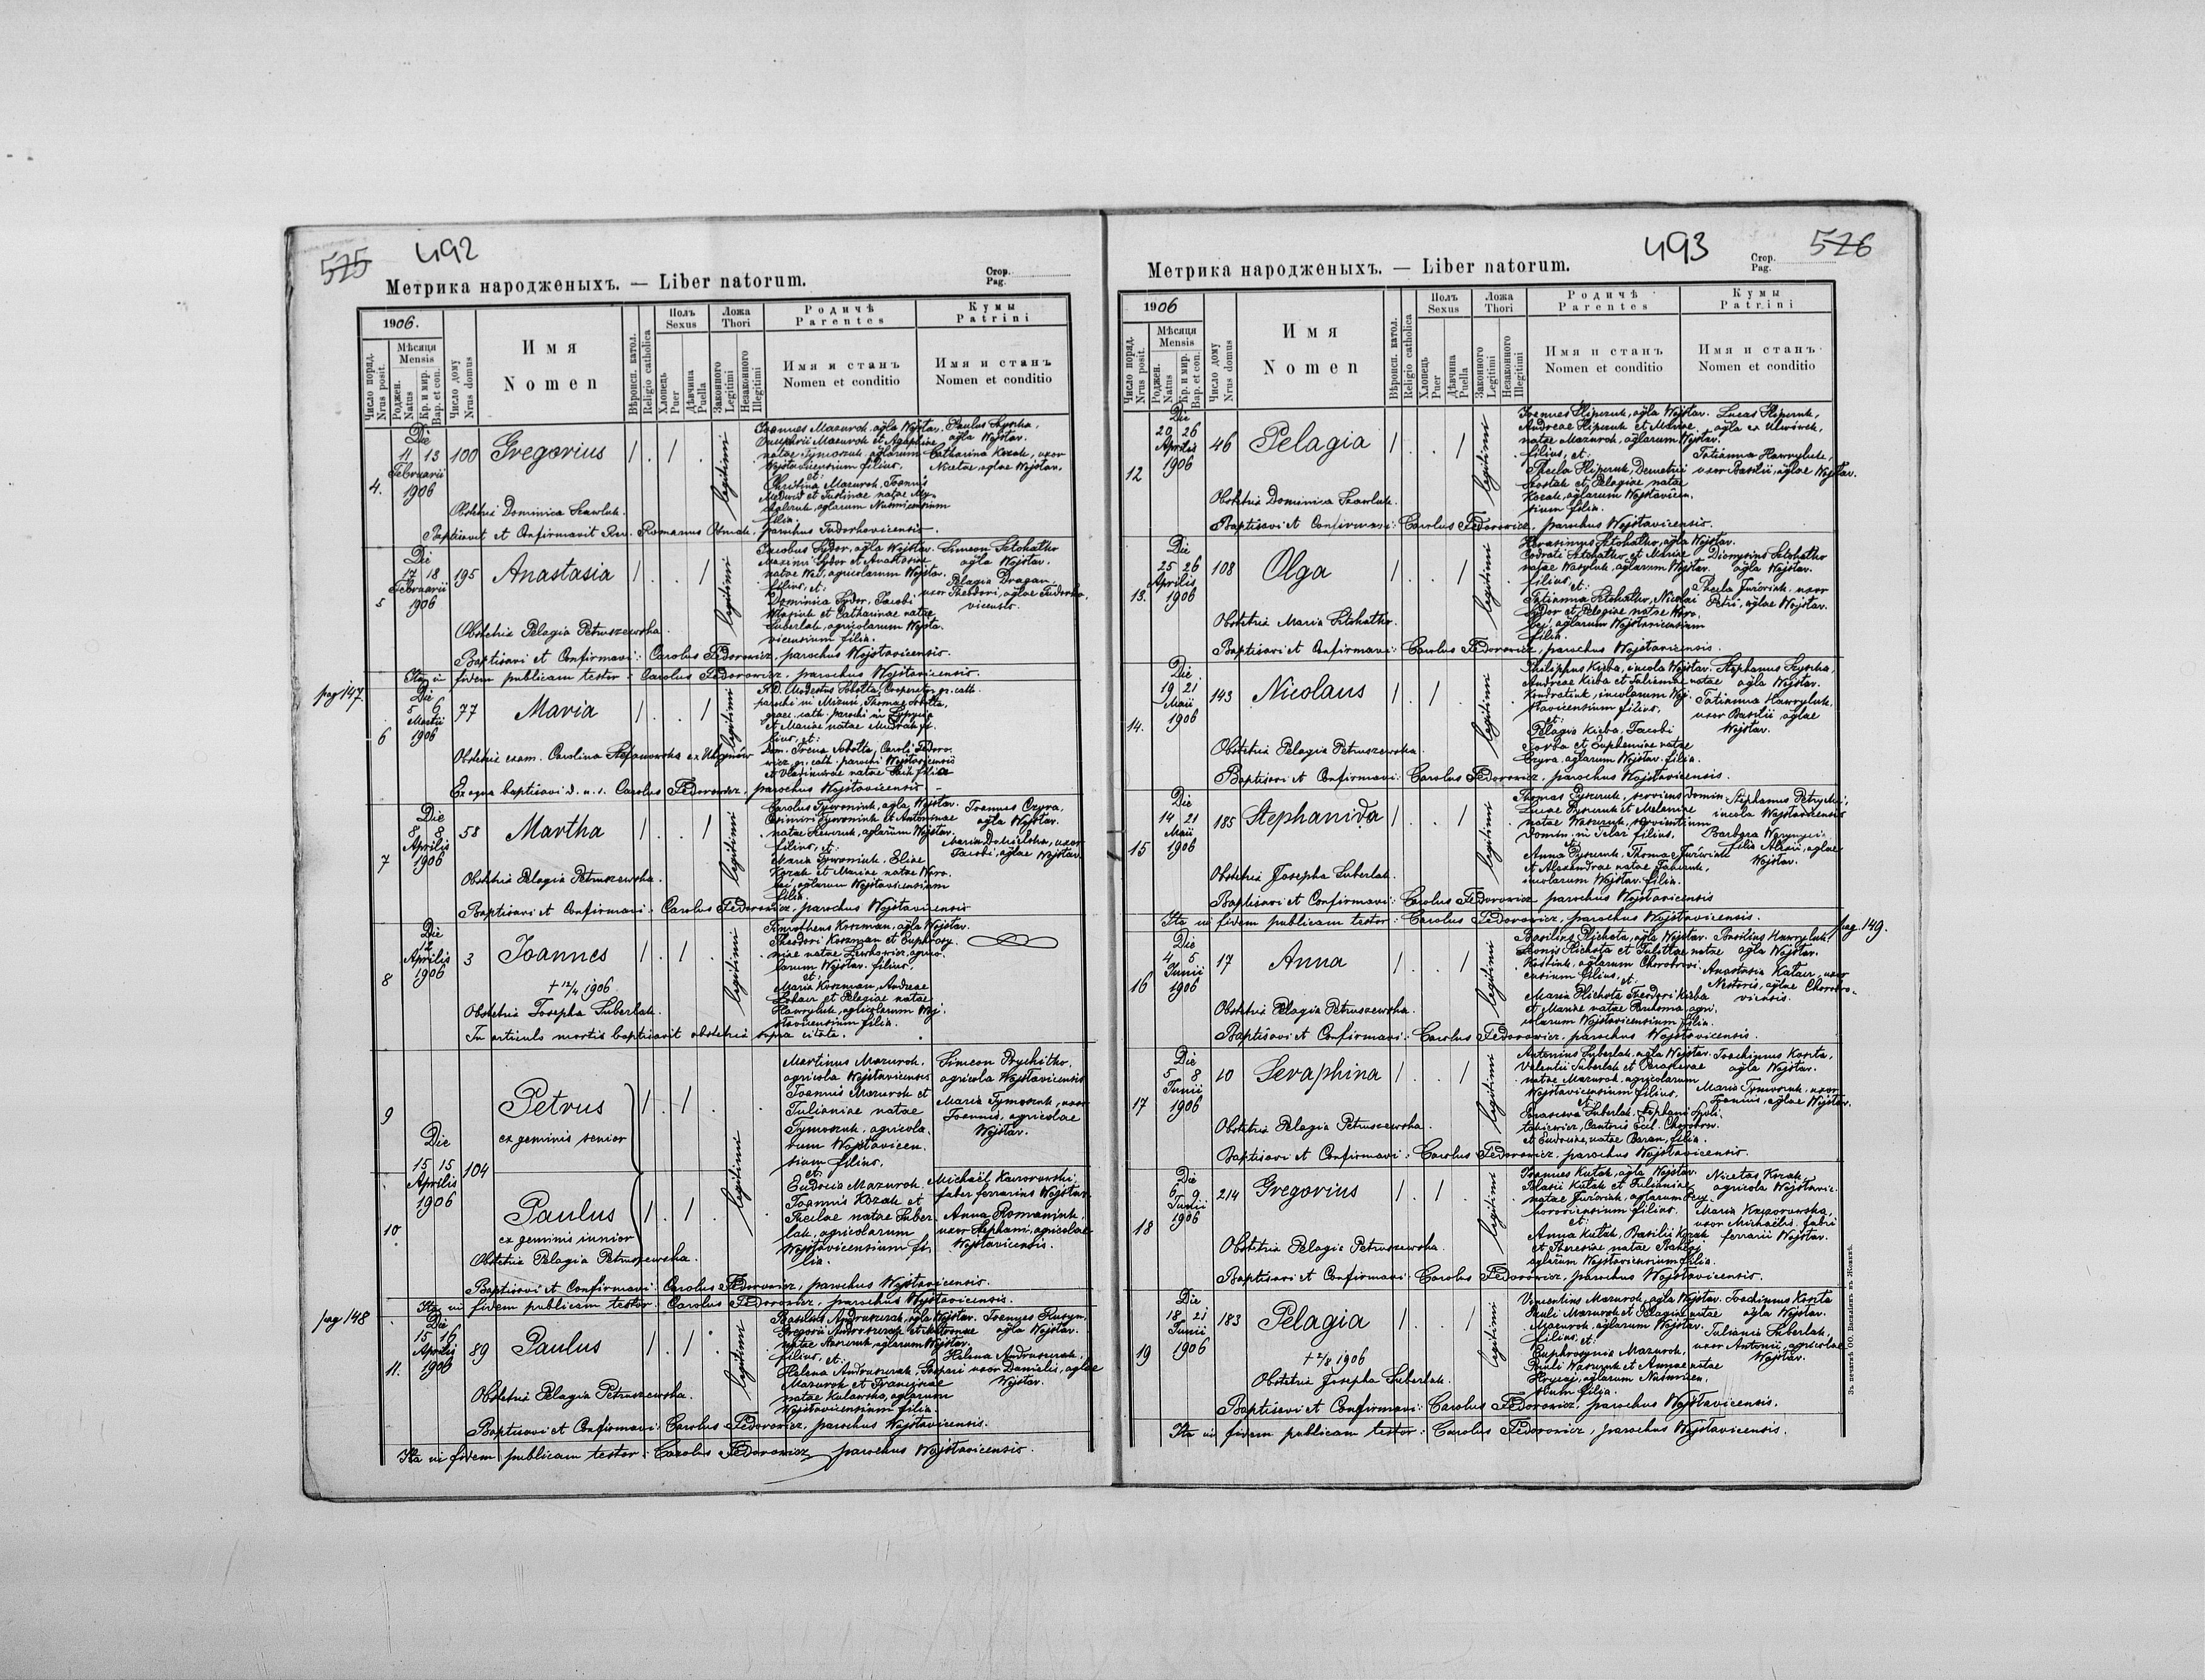 525 492
Метрика народженыхъ. — Liber natorum.
Стор.
Pag.
1906.
Число поряд.
Nrus posit.
Мѣсяця
Mensis
Роджен.
Natus
Кр. и мир.
Bap. et con.
Число дому
Nrus domus
Имя
Nomen
Вѣроисп. катол.
Religio catholica
Полъ
Sexus
Хлопець
Puer
Дѣвчина
Puella
Ложа
Thori
Законного
Legitimi
Незаконного
Illegitimi
Родичѣ
Parentes
Имя и станъ
Nomen et conditio
Кумы
Patrini
Имя и станъ
Nomen et conditio
4.
Die
11 13
Februarii
1906
100
Gregorius
legitimi
Joannes Mazurok, agla Wojstav.
Onuphrii Mazurok et Agaphiae
natae Tymoszuk, aglarum
Wojstavicensium filius,
et:
Christina Mazurok, Joannis
Medwid et Justinae natae
aglarum Nusmicensium
filia.
Paulus
agla Wojstav.
Catharina Kozak, uxor
Nicetae, aglae Wojstav.
Obstetrix Dominica Szawluk.
Baptisavit et Confirmavit Rev. Romanus parochus Tudorkovicensis.
5
Die
17 18
Februarii
1906
195
Anastasia
legitimi
Jacobus Sydor, agla Wojstav.
Maximi Sydor et Anastasiae
natae agricolarum Wojsta.
filius, et:
Dominica Sydor, Jacobi
et Catharinae natae
Suberlak, agricolarum Wojsta.
vicensium filia.
Simeon Sztohatko
agla Wojstav.
Pelagia Dragan,
uxor Theodori, aglae Tudorko.
vicensis.
Obstetrix Pelagia Petruszewska.
Baptisavi et Confirmavi: Carolus Fedorowicz, parochus Wojstavicensis.
Ita in fidem publicam testor: Carolus Fedorowicz, parochus Wojstavicensis.
pag 147.
6
Die
5 6
Martii
1906
77
Maria
legitimi
R. D. Modestus Sobotta, Cooperator gr. cath.
parochi in Mizuń, Thomae Sobotta,
graec. cath. parochi in
et Mariae natae Mudrak fi.
lius, et:
Dom. Irena Sobotta, Caroli Fedoro.
wicz gr. cath. parochi Wojstavicensis
et Vladimirae natae filia
Obstetrix exam. Carolina Stefanowska ex Uhrynów
Ex aqua baptisavi d. n. s. Carolus Fedorowicz, parochus Wojstavicensis. –
7
Die
8 8
Aprilis
1906
58
Martha
legitimi
Carolus Tywoniuk, agla Wojstav.
Casimiri Tywoniuk et Antoninae
natae Szewczuk, aglarum Wojstav.
filius, et:
Maria Tywoniuk, Eliae
Kozak et Mariae natae Woro.
bej, aglarum Wojstavicensium
filia.
Joannes Czyra,
agla Wojstav.
Maria uxor
Jacobi, aglae Wojstav.
Obstetrix Pelagia Petruszewska.
Baptisavi et Confirmavi: Carolus Fedorowicz, parochus Wojstavicensis
8
Die
12
Aprilis
1906
3
Joannes
† 12/4 1906
legitimi
Timotheus Korzman, agla Wojstav.
Theodori Korzman et Euphrosy.
niae natae Lewkowicz, agrico.
larum Wojstav. filius,
et:
Maria Korzman, Andreae
et Pelagiae natae
Hawryluk, agricolarum Woj.
stavicensium filia.
Obstetrix Josepha Suberlak.
In articulo mortis baptisavit obstetrix supra citata.
9
Petrus
ex geminis senior
Die
15 15
Aprilis
1906
104
legitimi
Martinus Mazurok,
agricola Wojstavicensis
Joannis Mazurok et
Julianiae natae
Tymoszuk, agricola.
rum Wojstavicen.
sium filius,
et:
Eudocia Mazurok,
Joannis Kozak et
Theclae natae Suber.
lak, agricolarum
Wojstavicensium fi.
lia.
Simeon Prychitko,
agricola Wojstavicensis
Maria Tymoszuk, uxor
Joannis, agricolae
Wojstav.
10
Paulus
ex geminis iunior
Michaël Kaworowski,
faber ferrarius Wojstav.
Anna Romaniuk,
uxor Stephani, agricolae
Wojstavicensis.
Obstetrix Pelagia Petruszewska.
Baptisavi et Confirmavi: Carolus Fedorowicz, parochus Wojstavicensis.
Ita in fidem publicam testor: Carolus Fedorowicz, parochus Wojstavicensis.
pag 148
11.
Die
15 16
Aprilis
1906
89
Paulus
legitimi
Basilius Andruszczak, agla Wojstav.
Gregorii Andruszczak et Matronae
natae aglarum Wojstav.
filius, et:
Helena Andruszczak, Gaspari
Mazurok et Franciscae
natae Kulawska, aglarum
Wojstavicensium filia.
Joannes Rusyn,
agla Wojstav.
Helena Andruszczak,
uxor Danielis, aglae
Wojstav.
Obstetrix Pelagia Petruszewska.
Baptisavi et Confirmavi: Carolus Fedorowicz, parochus Wojstavicensis.
Ita in fidem publicam testor: Carolus Fedorowicz parochus Wojstavicensis.
493 526
Метрика народженыхъ. — Liber natorum.
Стор.
Pag.
1906
Число поряд.
Nrus posit.
Мѣсяця
Mensis
Роджен.
Natus
Кр. и мир.
Bap. et con.
Число дому
Nrus domus
Имя
Nomen
Вѣроисп. катол.
Religio catholica
Полъ
Sexus
Хлопець
Puer
Дѣвчина
Puella
Ложа
Thori
Законного
Legitimi
Незаконного
Illegitimi
Родичѣ
Parentes
Имя и станъ
Nomen et conditio
Кумы
Patrini
Имя и станъ
Nomen et conditio
12
Die
20 26
Aprilis
1906
46
Pelagia
legitimi
Joannes Slipczuk, agla Wojstav.
Andreae Slipczuk et Mariae
natae Mazurok, aglarum Wojstav.
filius, et:
Thecla Slipczuk, Demetrii
Szostak et Pelagiae natae
Kozak, aglarum Wojstavicen.
sium filia.
Lucas Slipczuk,
agla ex
Tatianna Hawryluk,
uxor Basilii, aglae Wojstav.
Obstetrix Dominica Szawluk.
Baptisavi et Confirmavi: Carolus Fedorowicz, parochus Wojstavicensis.
13.
Die
25 26
Aprilis
1906
108
Olga
legitimi
Harasimus Sztohatko, agla Wojstav.
Codrati Sztohatko et Mariae
natae Wasyluk, aglarum Wojstav.
filius, et:
Tatianna Sztohatko, Nicolai
Sydor et Pelagiae natae Woro.
bej, aglarum Wojstavicensium
filia.
Dionysius Sztohatko
agla Wojstav.
Thecla Jurčeniuk, uxor
Petri, aglae Wojstav.
Obstetrix Maria Sztohatko.
Baptisavi et Confirmavi: Carolus Fedorowicz, parochus Wojstavicensis.
14.
Die
19 21
Maii
1906
143
Nicolaus
legitimi
Philippus Kizba, incola Wojstav.
Andreae Kizba et Julianiae natae
Kondratiuk, incolarum Woj.
stavicensium filius,
et:
Pelagia Kizba, Jacobi
Torba et Euphemiae natae
Czyra, aglarum Wojstav. filia.
Stephanus
agla Wojstav.
Tatianna Hawryluk,
uxor Basilii aglae
Wojstav.
Obstetrix Pelagia Petruszewska.
Baptisavi et Confirmavi: Carolus Fedorowicz, parochus Wojstavicensis.
15
Die
14 21
Maii
1906
185
Stephanida
legitimi
Thomas Pyszczuk, serviens domin
Lucae Pyszczuk et Melaniae
natae Waszczuk, servientium
domin. in Telaż filius,
et:
Anna Pyszczuk, Thomae
et Alexandrae natae
incolarum Wojstav. filia.
Stephanus
incola Wojstavicensis
Barbara
filia Alexii, aglae
Wojstav.
Obstetrix Josepha Suberlak.
Baptisavi et Confirmavi: Carolus Fedorowicz parochus Wojstavicensis
Ita in fidem publicam testor: Carolus Fedorowicz, parochus Wojstavicensis.
pag. 149.
16
Die
4 5
Junii
1906
17
Anna
legitimi
Basilius Plichota, agla Wojstav.
Plichota et Julittae natae
Kostiuk, aglarum Chorobrovi.
censium filius, et:
Maria Plichota Theodori Kizba
et Mariae natae agri.
colarum Wojstavicensium filia.
Basilius Hawryluk,
agla Wojstav.
Anastasia uxor
Nestoris, aglae Chorobro.
vicensis.
Obstetrix Pelagia Petruszewska.
Baptisavi et Confirmavi: Carolus Fedorowicz, parochus Wojstavicensis.
17
Die
5 8
Junii
1906
10
Seraphina
legitimi
Antonius Suberlak, agla Wojstav.
Valentii Suberlak et Parascevae
natae Mazurok, agricolarum
Wojstavicensium filius,
et:
Parasceva Suberlak, Stephani
Cantoris Eccl. Chorobrov.
et Eudociae, natae Baran, filia.
Joachimus Kozita,
agla Wojstav.
Maria Tymoszuk, uxor
Joannis, aglae Wojstav.
Obstetrix Pelagia Petruszewska.
Baptisavi et Confirmavi: Carolus Fedorowicz, parochus Wojstavicensis.
18
Die
6 9
Junii
1906
214
Gregorius
legitimi
Joannes Kutak, agla Wojstav.
Blasii Kutak et Julianiae
natae aglarum
filius.
et:
Anna Kutak, Basilii Kozak
et Theresiae natae
aglarum Wojstavicensium filia.
Nicetas Kozak,
agricola Wojstavic.
Maria Kaworowska,
uxor Michaelis fabri
ferrarii Wojstav.
Obstetrix Pelagia Petruszewska.
Baptisavi et Confirmavi: Carolus Fedorowicz, parochus Wojstavicensis.
19
Die
18 21
Junii
1906
183
Pelagia
† 2/8 1906
legitimi
Vincentius Mazurok, agla Wojstav.
Pauli Mazurok et Pelagiae natae
Mazurok, aglarum Wojstav.
filius, et:
Euphrosynia Mazurok,
Pauli Waszczuk et Annae natae
Hrycaj, aglarum Nusmicen.
sium filia.
Joachimus Kozita
agla Wojstav.
Juliania Suberlak,
uxor Antonii, agricolae
Wojstav.
Obstetrix Josepha Suberlak.
Baptisavi et Confirmavi: Carolus Fedorowicz, parochus Wojstavicensis.
Ita in fidem publicam testor: Carolus Fedorowicz, parochus Wojstavicensis.
Зъ печатнѣ ОО. Василіянъ въ Жовквѣ.